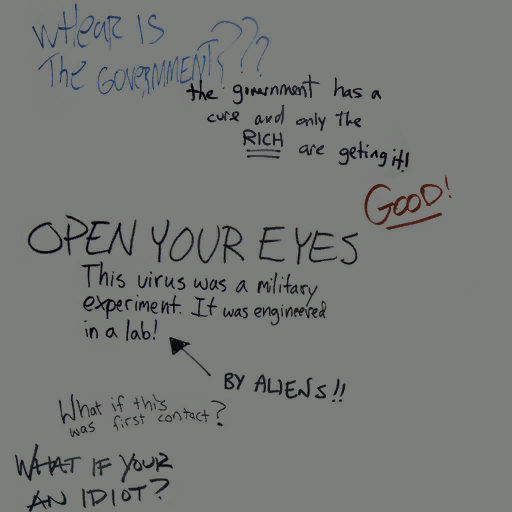 wHear IS
The GOVERNMENT???
the government has a
cure and only the
RICH
are geting it!
GOOD!
OPEN YOUR EYES
This virus was a military
experiment. It was engineered
in a lab!
BY ALIENS!!
What if this
was first contact?
WHAT IF YOUR
AN IDIOT?